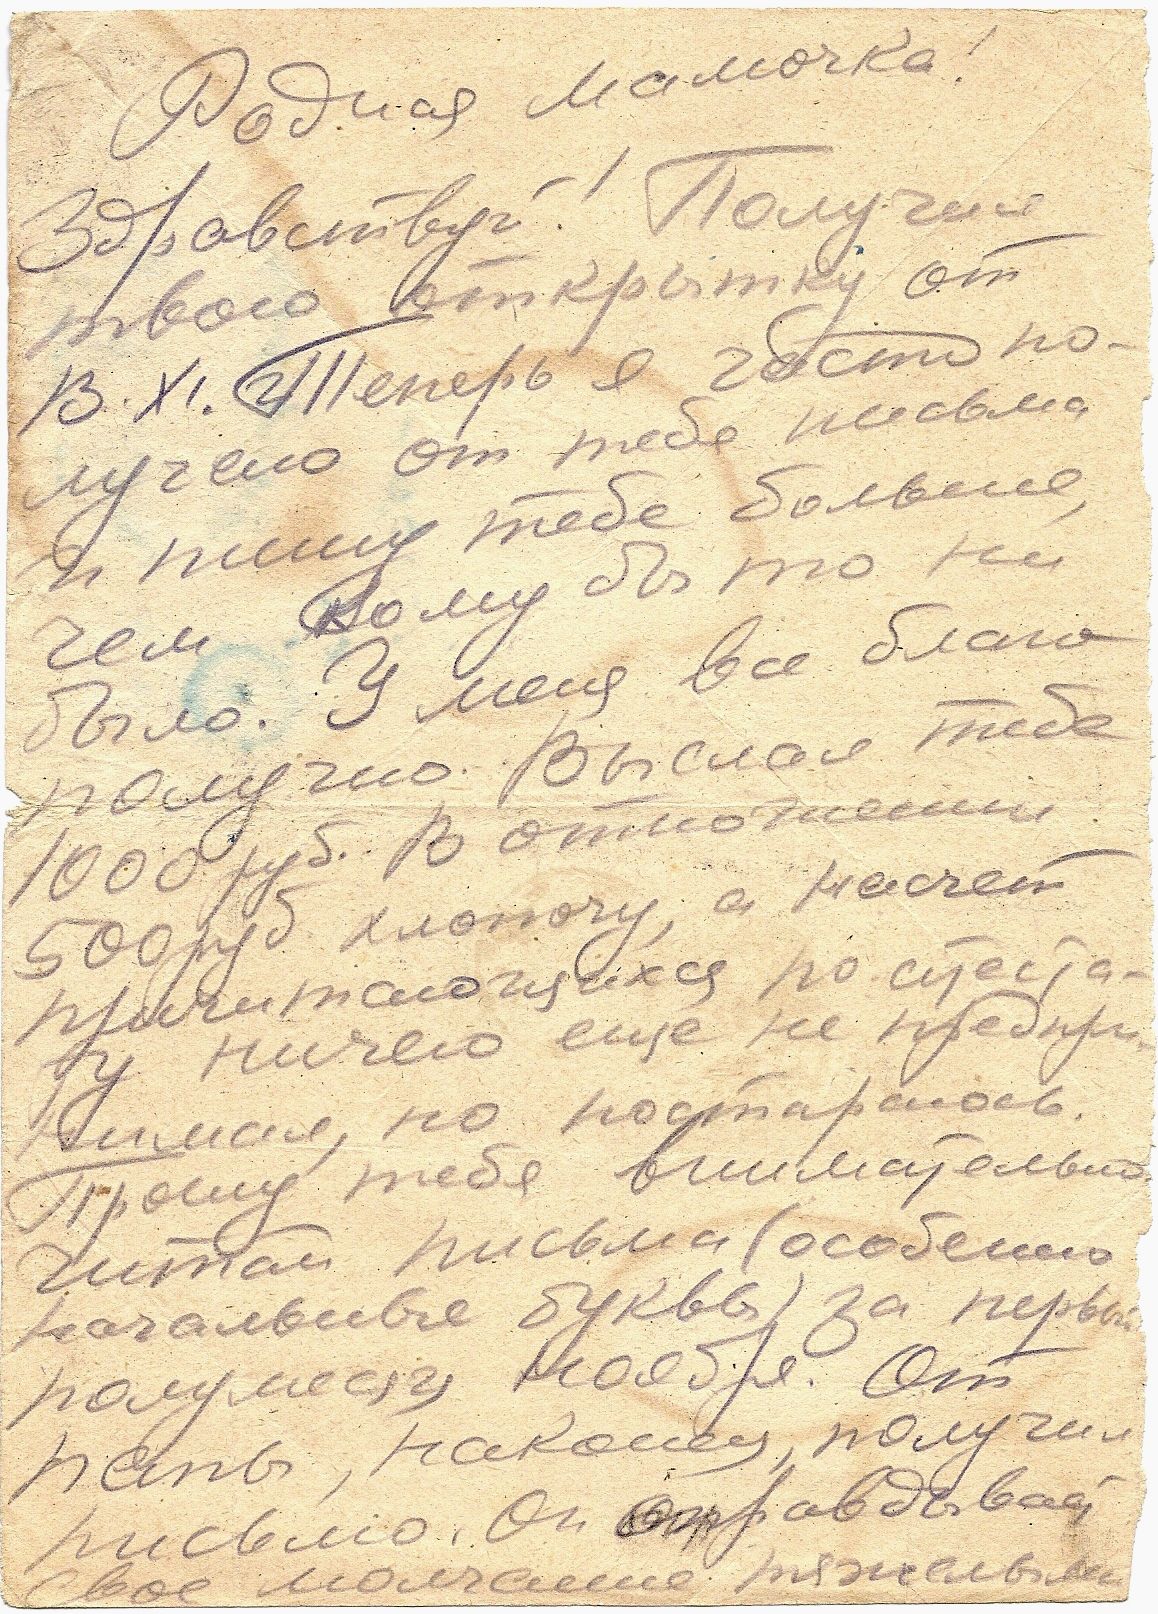 Родная мамочка!
Здравствуй! Получил
твою открытку от
13.XI. Теперь я часто по-
лучаю от тебя письма
и пишу тебе больше,
чем кому бы то ни
было. У меня все благо
получно. Выслал тебе
1000 руб. В отношении
500 руб хлопочу, а насчет
причитающихся по аттеста-
ту ничего еще не предпри-
нимал, но постараюсь.
Прошу тебя внимательно
читай письма (особенно
начальные буквы) за первый
полумесяц ноября. От
папы, наконец, получил
письмо. Он оправдывает
свое молчание тяжелым